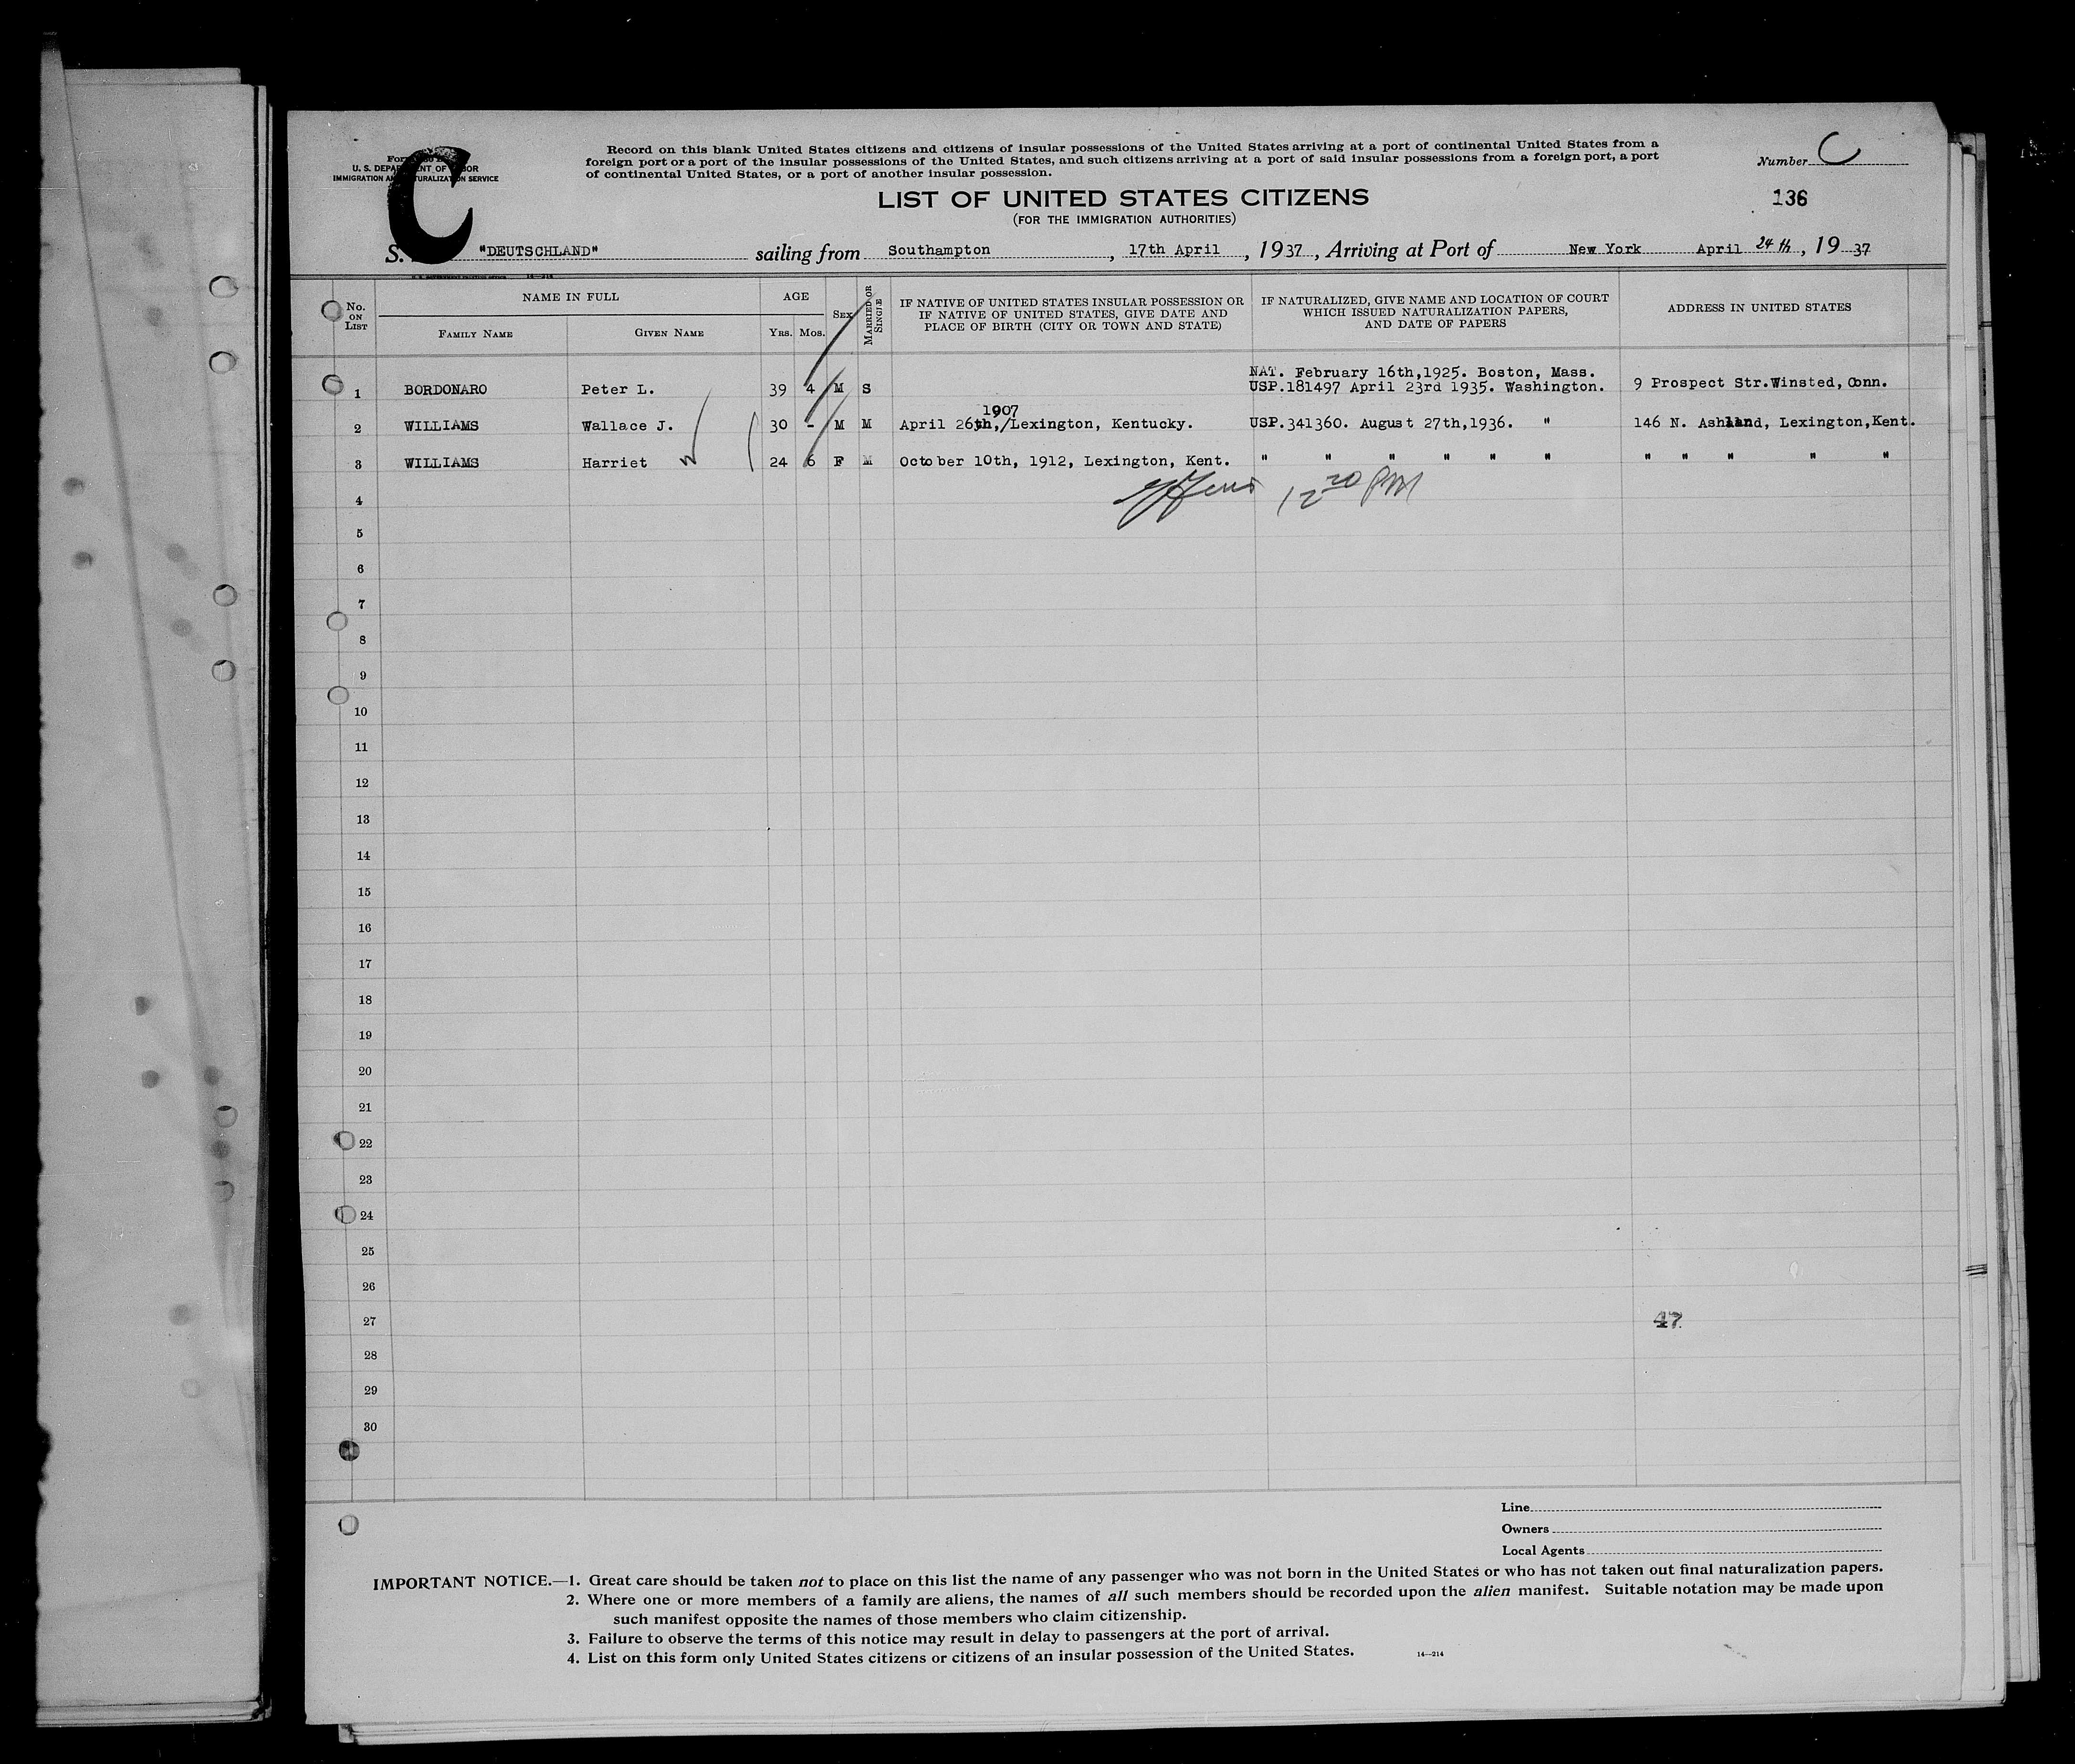 Record on this blank United States citizens and citizens of insular possessions of the United States arriving at a port of continental United States from a
foreign port or a port of the insular possessions of the United States, and such citizens arriving at a port of said insular possessions from a foreign port, a port
of continental United States, or a port of another insular possession.
U. S. DEPARTMENT OF LABOR
IMMIGRATION AND NATURALIZATION SERVICE
C
Number C
136
LIST OF UNITED STATES CITIZENS
(FOR THE IMMIGRATION AUTHORITIES)
S. "DEUTSCHLAND" sailing from Southampton, 17th April, 1937, Arriving at Port of New York April 24th, 19 37
No. ON LIST
NAME IN FULL
FAMILY NAME
GIVEN NAME
AGE
YRS.
MOS.
SEX
MARRIED OR SINGLE
IF NATIVE OF UNITED STATES INSULAR POSSESSION OR
IF NATIVE OF UNITED STATES, GIVE DATE AND
PLACE OF BIRTH (CITY OR TOWN AND STATE)
IF NATURALIZED, GIVE NAME AND LOCATION OF COURT
WHICH ISSUED NATURALIZATION PAPERS,
AND DATE OF PAPERS
ADDRESS IN UNITED STATES
NAT. February 16th,1925. Boston, Mass.
1 BORDONARO Peter L. 39 4 M S USP.181497 April 23rd 1935. Washington. 9 Prospect Str.Winsted, Conn.
1907
2 WILLIAMS Wallace J. 30 - M M April 26th,/Lexington, Kentucky. USP.341360. August 27th,1936. " 146 N. Ashland, Lexington,Kent.
3 WILLIAMS Harriet 24 6 F M October 10th, 1912, Lexington, Kent. " " " " " " " " " " "
4 12 20 PM
5
6
7
8
9
10
11
12
13
14
15
16
17
18
19
20
21
22
23
24
25
26
27 47
28
29
30
Line
Owners
Local Agents
IMPORTANT NOTICE.—1. Great care should be taken not to place on this list the name of any passenger who was not born in the United States or who has not taken out final naturalization papers.
2. Where one or more members of a family are aliens, the names of all such members should be recorded upon the alien manifest. Suitable notation may be made upon
such manifest opposite the names of those members who claim citizenship.
3. Failure to observe the terms of this notice may result in delay to passengers at the port of arrival.
4. List on this form only United States citizens or citizens of an insular possession of the United States.
14—214